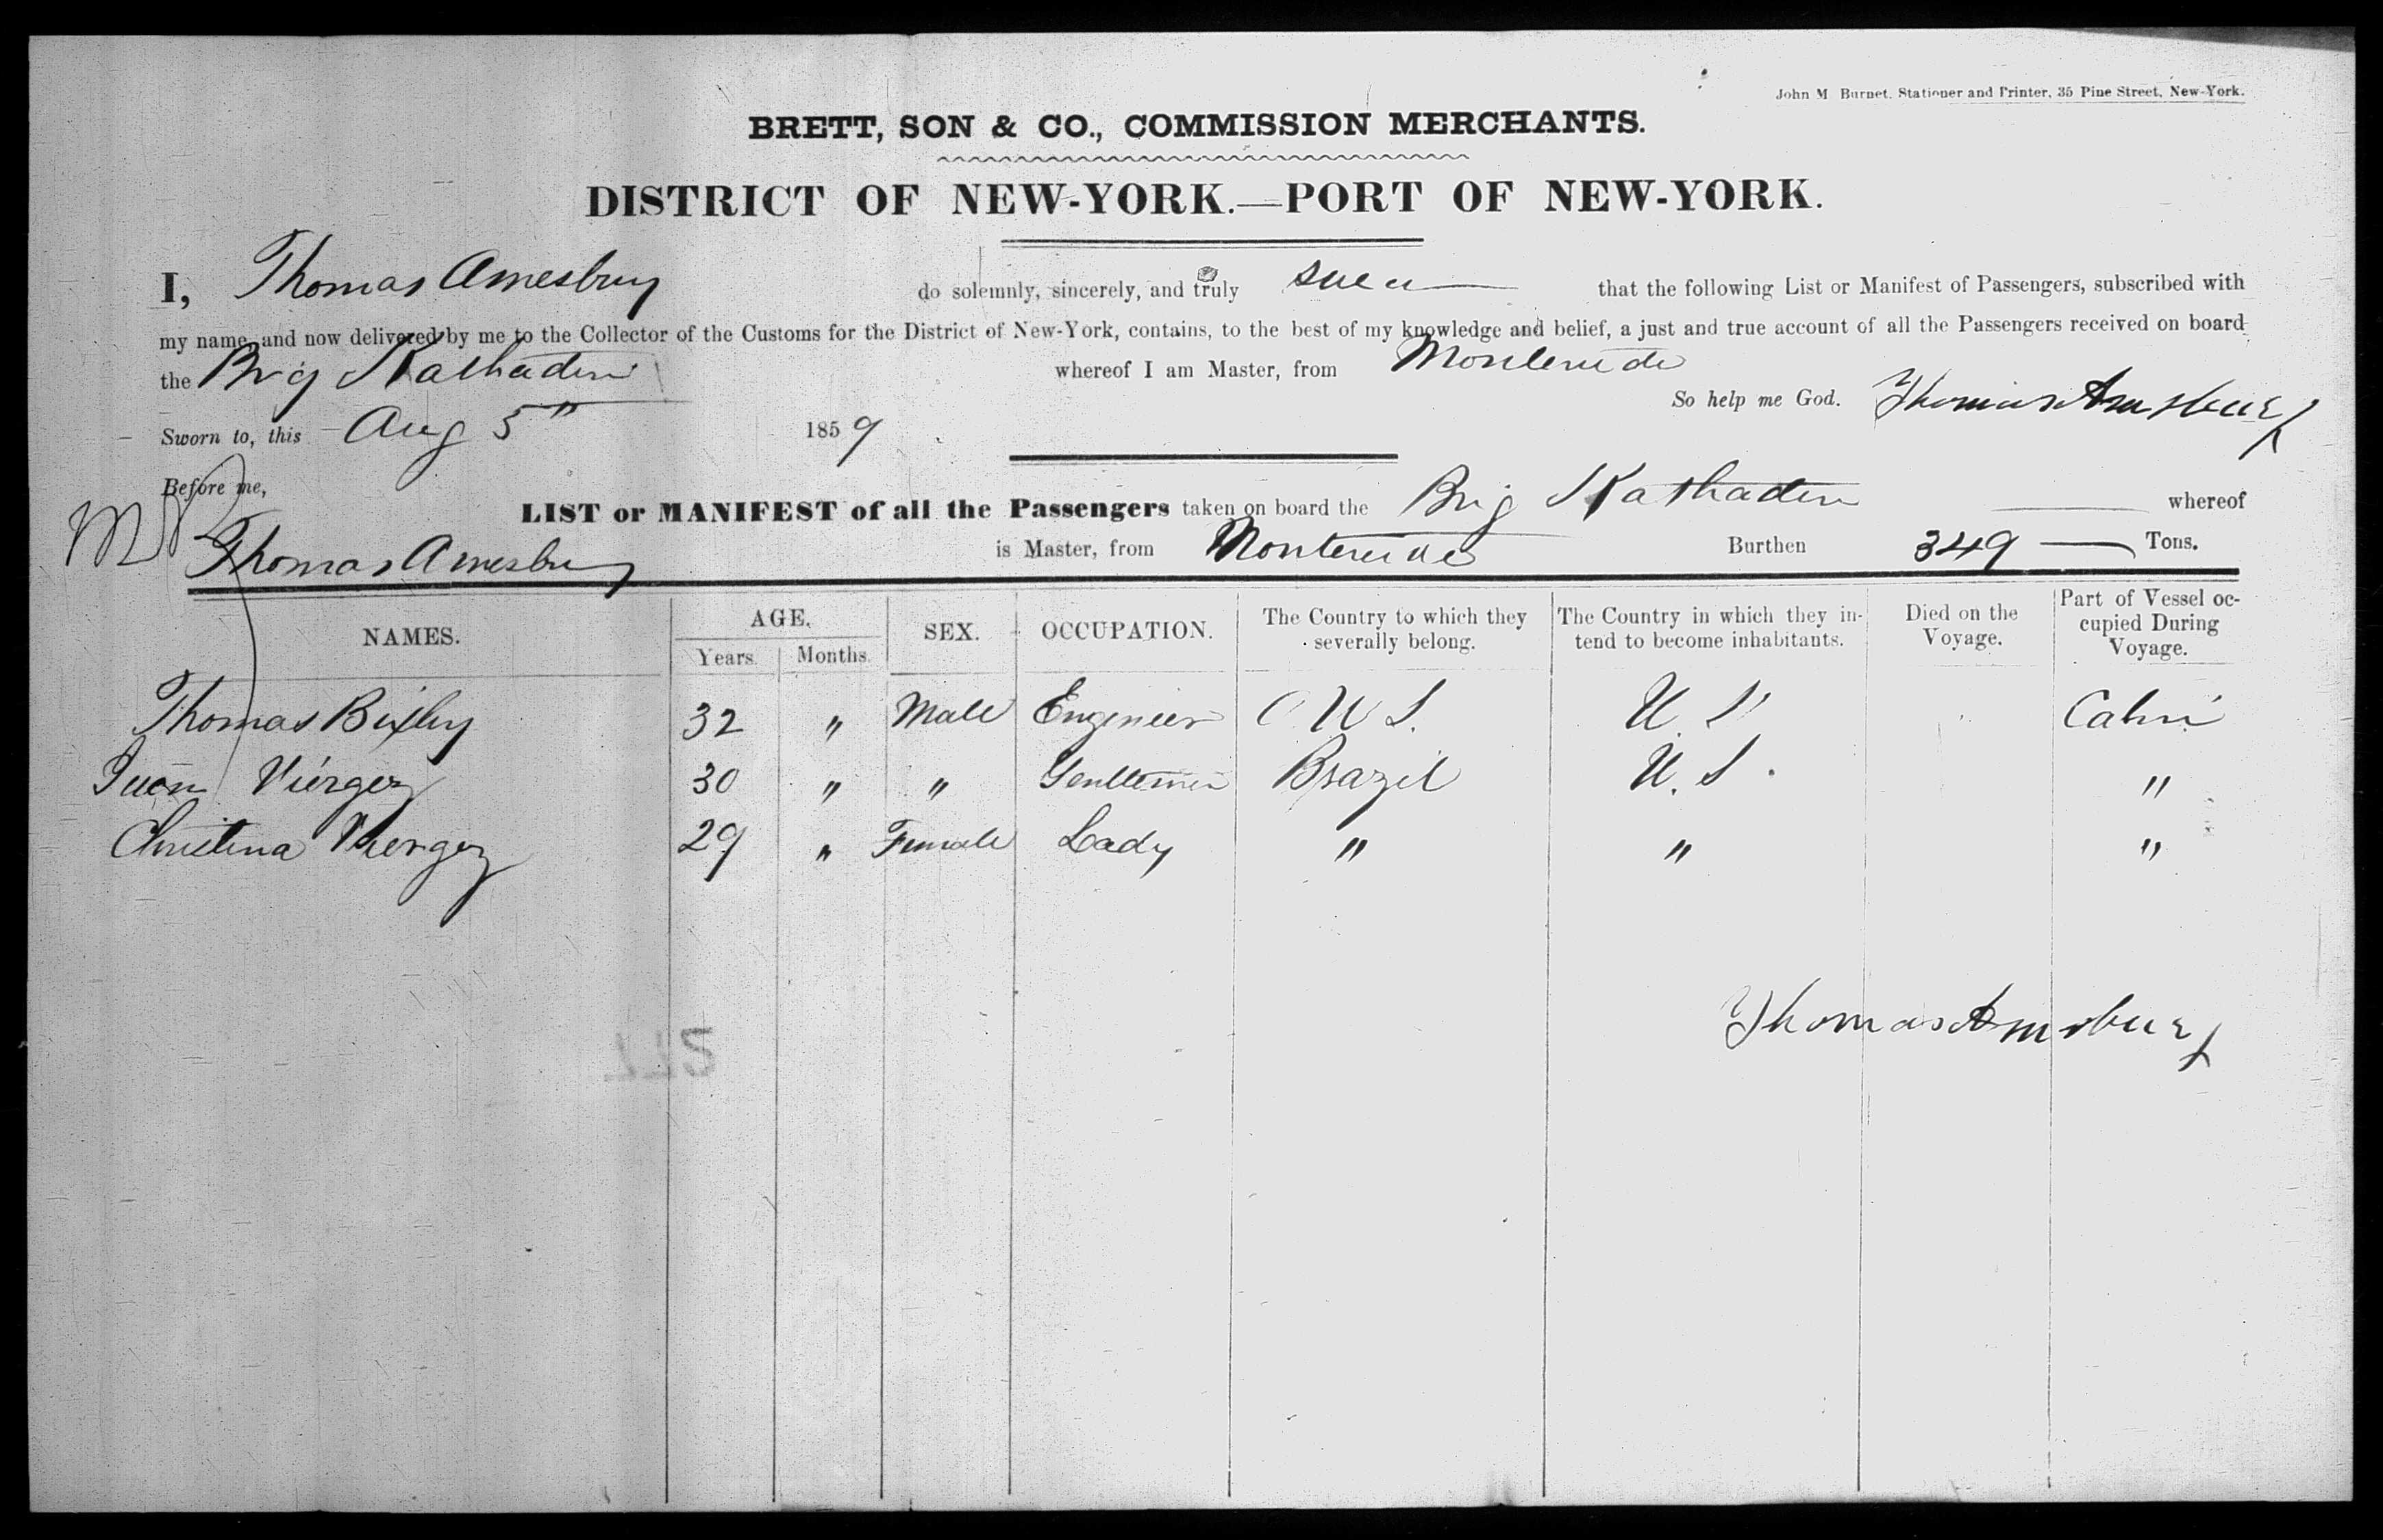 John M Burnet. Stationer and Printer, 35 Pine Street, New-York.
BRETT, SON & CO., COMMISSION MERCHANTS.
DISTRICT OF NEW-YORK.—PORT OF NEW-YORK.
I, Thomas Amesbury do solemnly, sincerely, and truly swear that the following List or Manifest of Passengers, subscribed with
my name and now delivered by me to the Collector of the Customs for the District of New-York, contains, to the best of my knowledge and belief, a just and true account of all the Passengers received on board
the Brig Kathadin whereof I am Master, from Montevideo
So help me God. Thomas Amsbury
Sworn to, this Aug 5" 1859
Before me,
LIST or MANIFEST of all the Passengers taken on board the Brig Kathadin whereof
Thomas Amesbury is Master, from Montevideo Burthen 349 Tons.
NAMES. AGE. Years. Months. SEX. OCCUPATION. The Country to which they severally belong. The Country in which they intend to become inhabitants. Died on the Voyage. Part of Vessel occupied During Voyage.
Thomas Bixby 32 " Male Engineer U S. U. S Cabin
Juan Viergez 30 " " Gentleman Brazil U. S. "
Christina Viergez 29 " Female Lady " " "
Thomas Amsbury